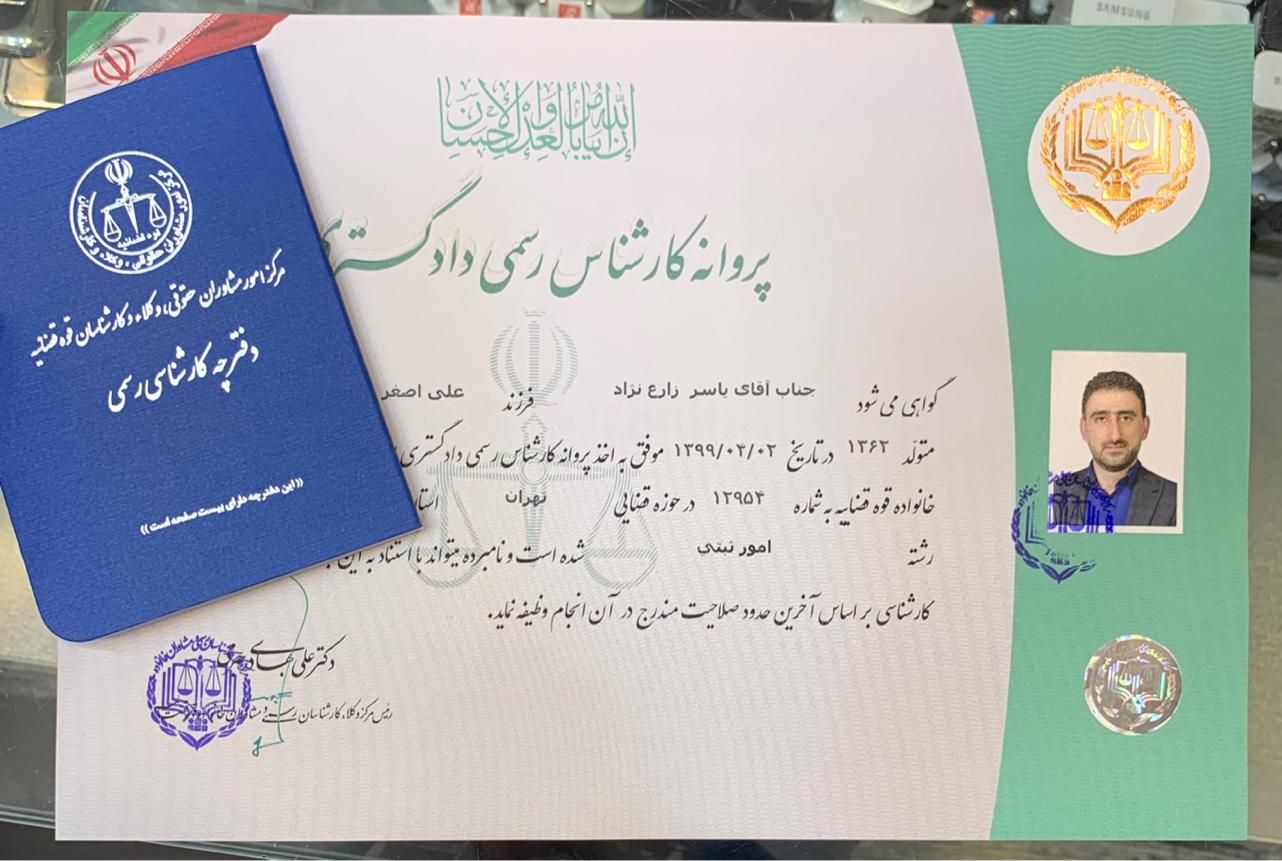 SAMSUNG
إن الله یأمر بالعدل و الإحسان
پروانه کارشناس رسمی دادگستری
گواهی می شود جناب آقای یاسر زارع نژاد فرزند علی اصغر
متولد ۱۳۶۲ در تاریخ ۱۳۹۹/۰۴/۰۲ موفق به اخذ پروانه کارشناس رسمی دادگستری
خانواده قوه قضاییه به شماره ۱۲۹۵۴ در حوزه قضایی تهران
رشته امور ثبتی شده است و نامبرده میتواند با استناد به این
کارشناسی بر اساس آخرین حدود صلاحیت مندرج در آن انجام وظیفه نماید.
دکتر علی
رئیس مرکز وکلا، کارشناسان رسمی و مشاوران
قوه قضائیه
مرکز امور مشاوران حقوقی، وکلاء و کارشناسان قوه قضائیه
دفترچه کارشناسی رسمی
((این دفترچه دارای بیست صفحه است))